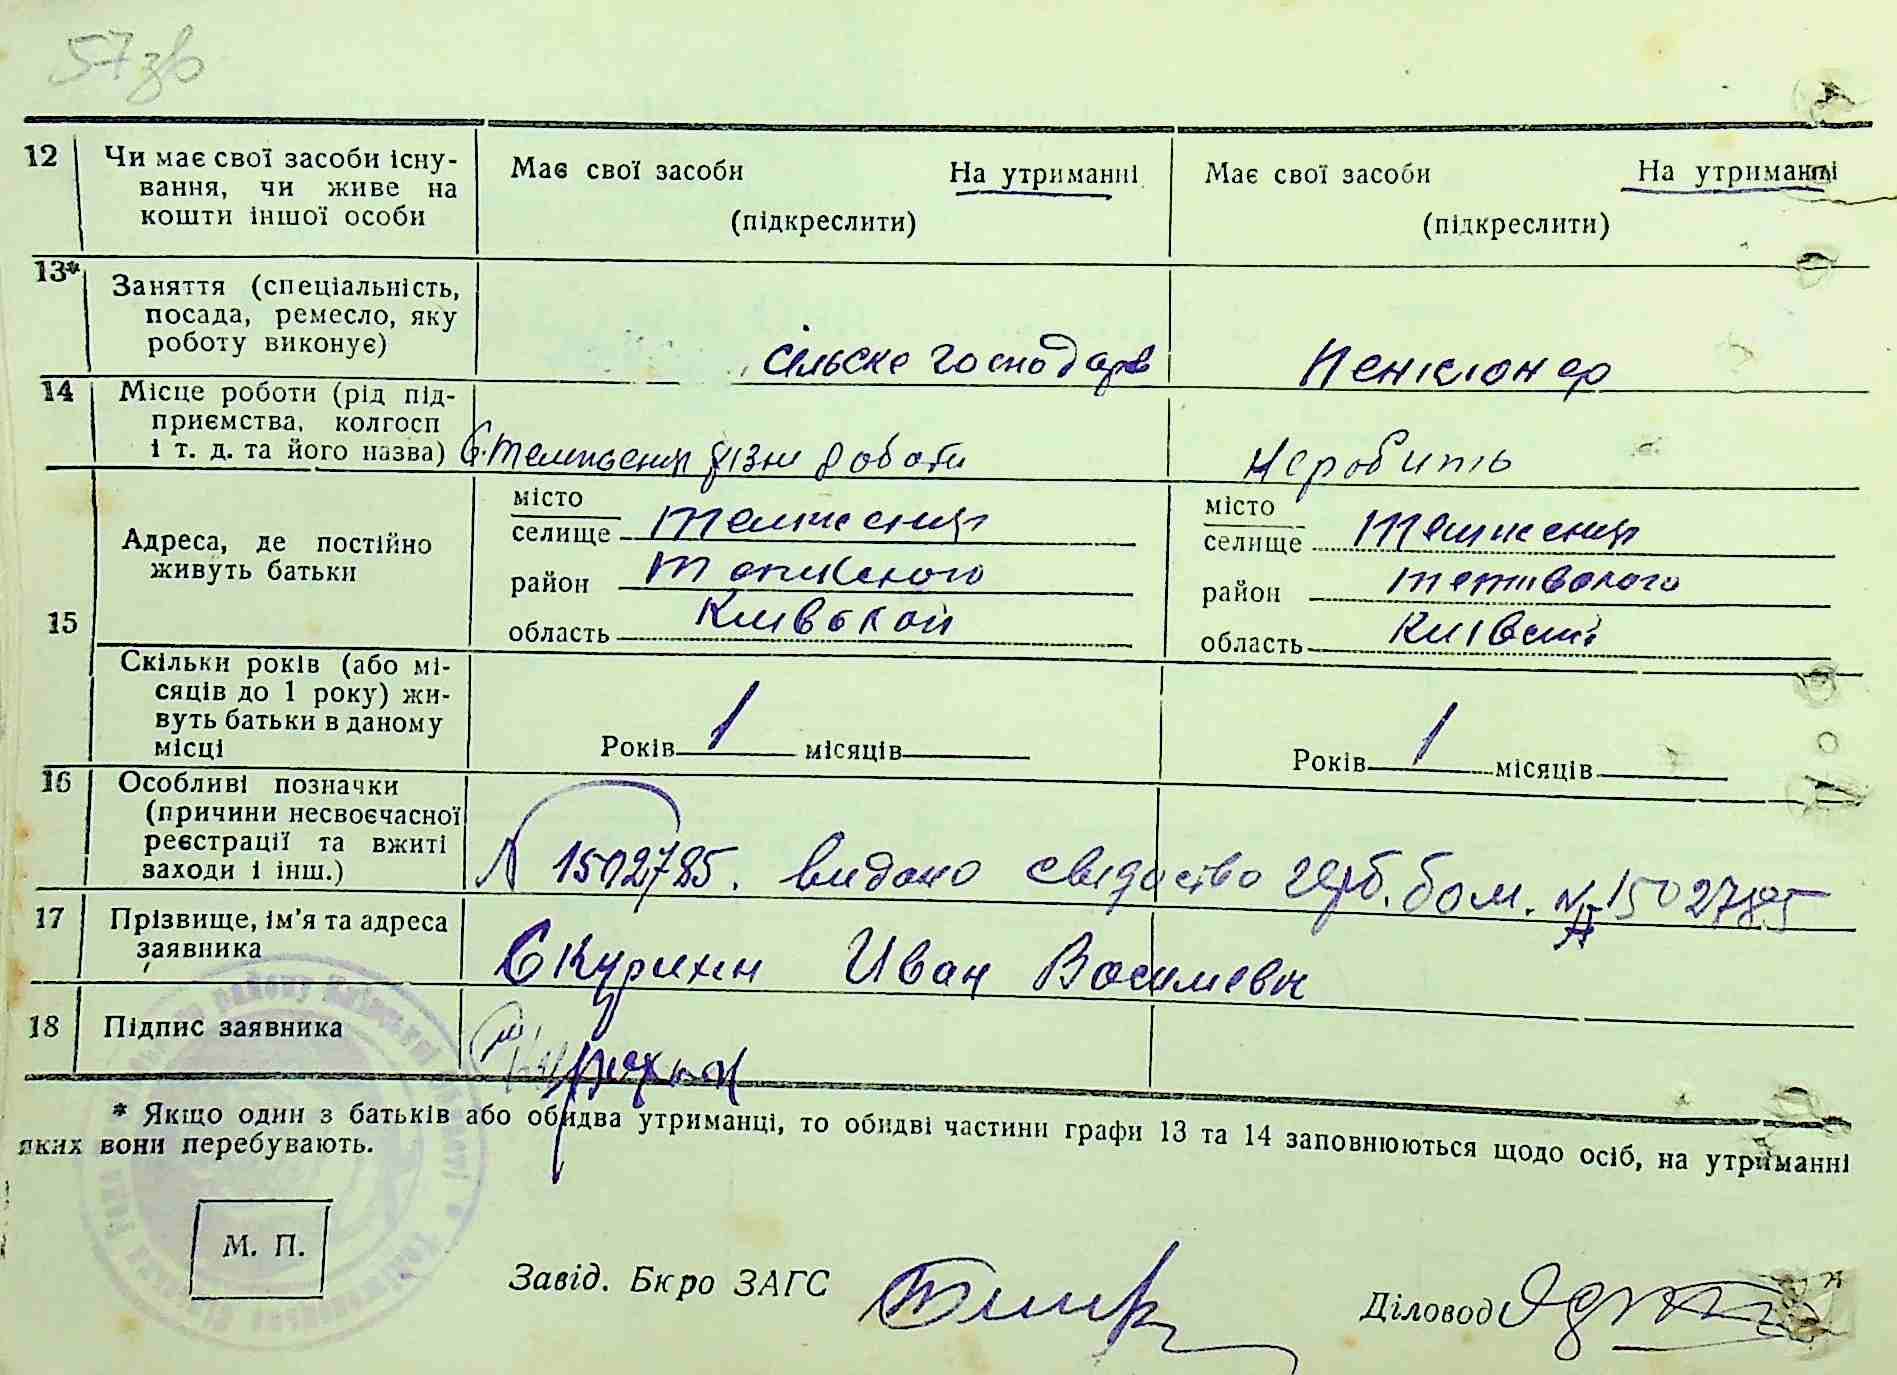 57 зв
12 Чи має свої засоби існу-
вання, чи живе на
кошти іншої особи
Має свої засоби На утриманні
(підкреслити)
Має свої засоби На утриманні
(підкреслити)
13* Заняття (спеціальність,
посада, ремесло, яку
роботу виконує)
сільске господарв
Пенсіонер
14 Місце роботи (рід під-
приємства, колгосп
і т. д. та його назва)
різні роботи
Не робить
15 Адреса, де постійно
живуть батьки
місто
селище
район
область Київской
місто
селище
район
область
Скільки років (або мі-
сяців до 1 року) жи-
вуть батьки в даному
місці
Років 1 місяців
Років 1 місяців
16 Особливі позначки
(причини несвоєчасної
реєстрації та вжиті
заходи і інш.)
1502785. видано свідоство герб. бом. № 1502785
17 Прізвище, ім'я та адреса
заявника
Скурихин Иван Василевич
18 Підпис заявника
* Якщо один з батьків або обидва утриманці, то обидві частини графи 13 та 14 заповнюються щодо осіб, на утриманні
яких вони перебувають.
М. П.
Завід. Бюро ЗАГС
Діловод